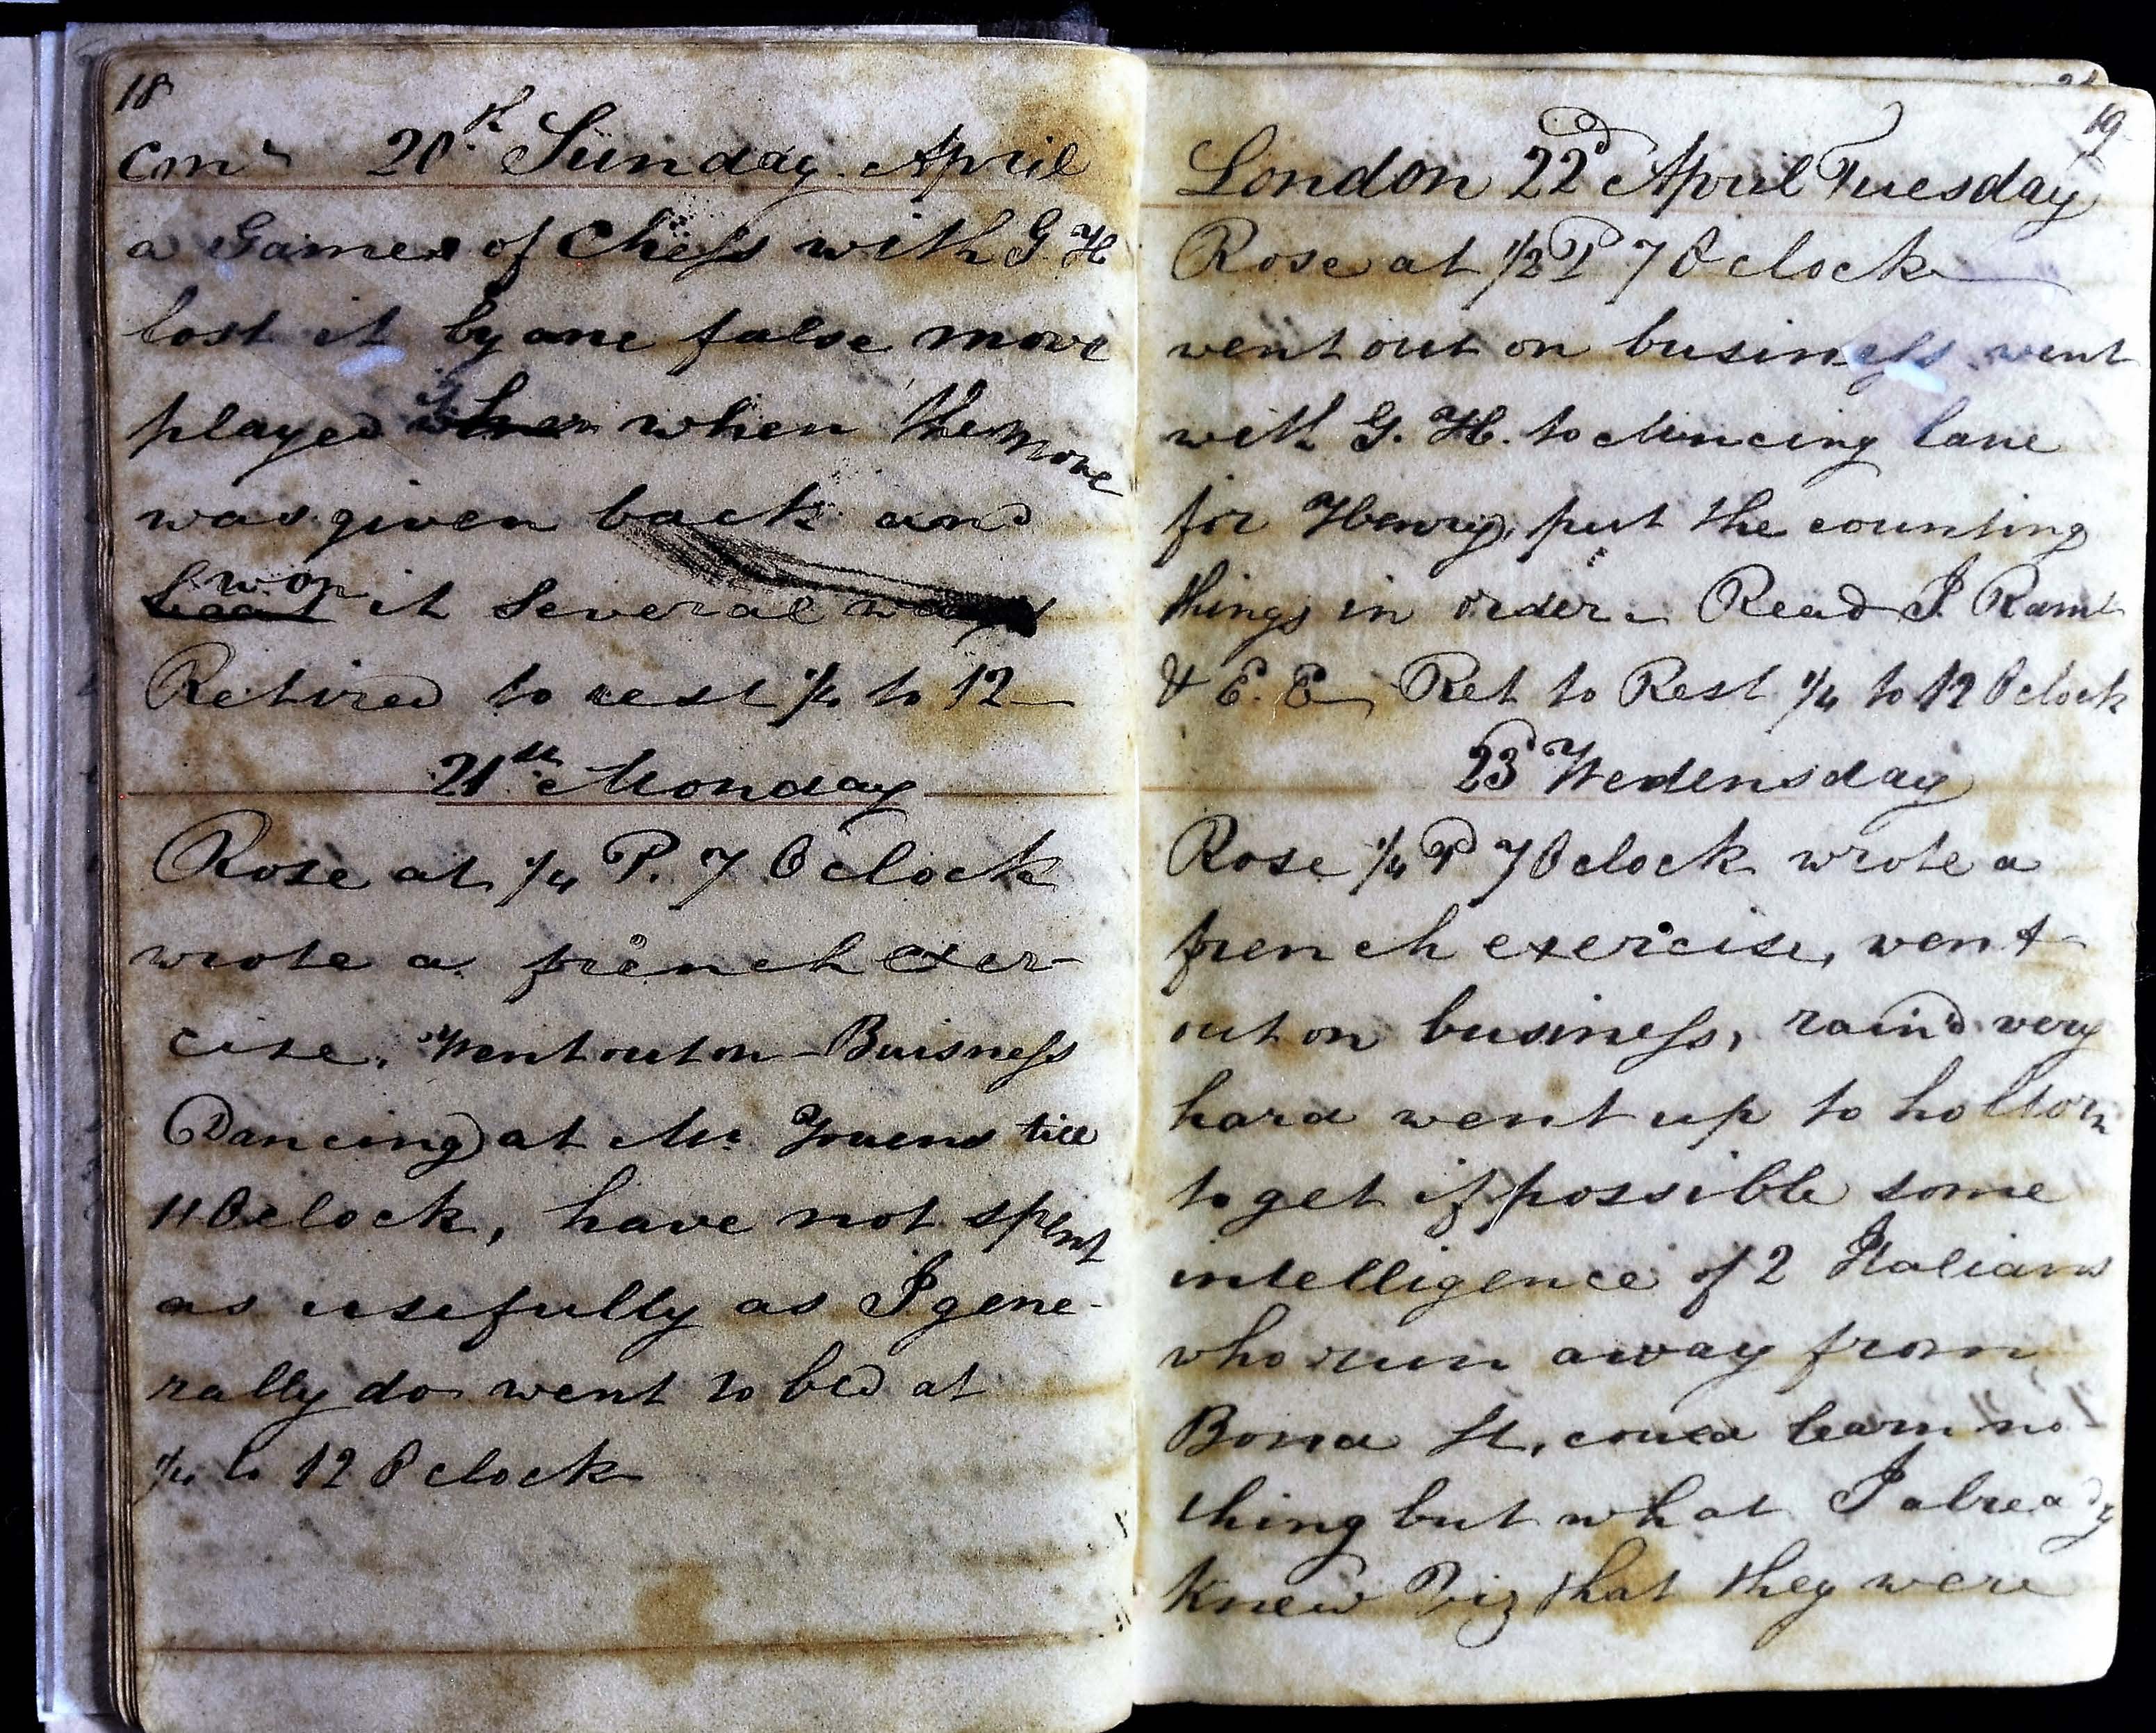 18
Conᵈ 20th Sunday April
a Game of Chess with G. H
lost it by one false move
played it when when the move
was given back and
beat won it several ways
Retired to rest 1/4 to 12
21st Monday
Rose at 1/4 P. 7 O clock
wrote a french exer-
cise, Went out on Buisness
Dancing at Mr. Youens till
11 Oclock, have not spent
as usefully as I gene-
rally do went to bed at
1/4 to 12 O clock
19
London 22d April Tuesday
Rose at 1/2 P 7 O clock
went out on business went
with G. H. to Mincing lane
for Henry, put the counting
things in order. Read I.
& E. E Ret to Rest 1/4 to 12 Oclock
23d Wedensday
Rose 1/4 P 7 Oclock wrote a
french exercise, went
out on business, rain'd very
hard went up to holton
to get if possible some
intelligence of 2 Italians
who run away from
Bond St, coud learn no-
thing but what I already
knew Viz that they were